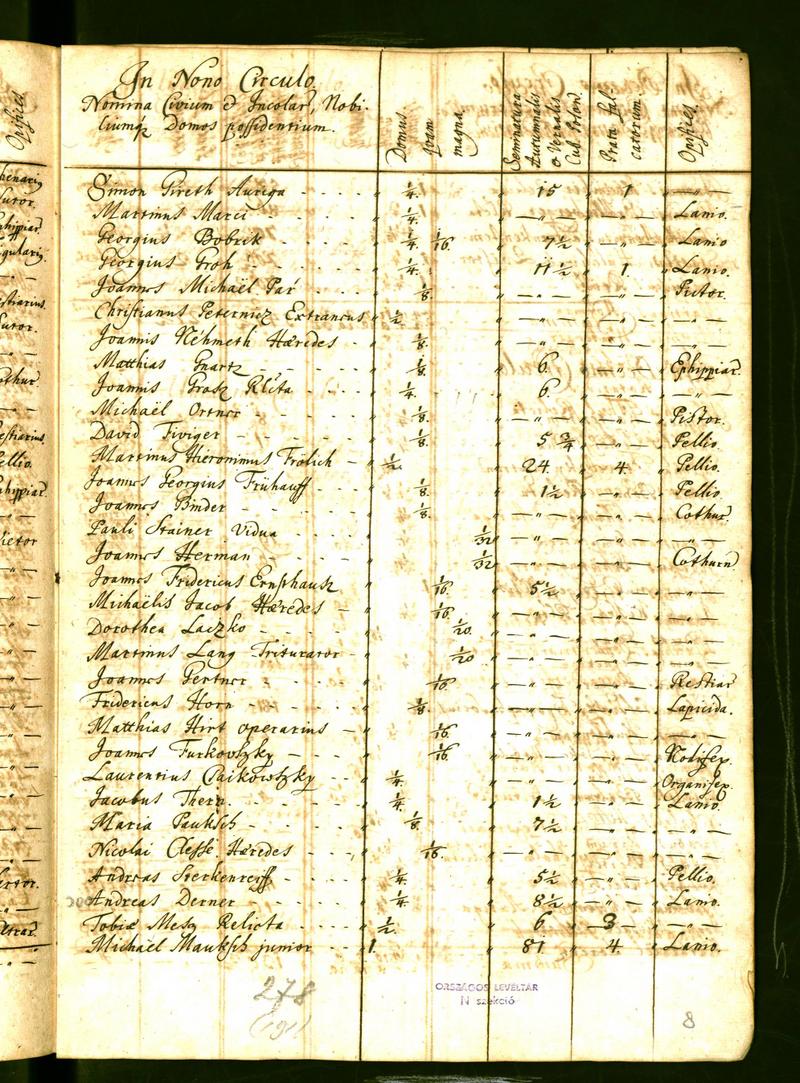 In Nono Circulo.
Nomina Civium & Incolar, Nobi-
liumq Domos possidentium.
Domus
quam
magna.
Seminatura
Autumnalis
& Vernalis
Cub. Poson
Prata fal-
catorum.
Opifices
Simon Gireth Auriga - - - - " 1/4. 15 1 — " —
Martinus Marci - - - - " 1/4. — " — — " — Lanio.
Georgius Bobrik - - - - " 1/4. 1/16. 7 1/2 — " — Lanio
Georgius Groh - - - - " 1/4. 11 1/2 1. Lanio.
Joannes Michaël Par - - - " 1/8. — " — — " — Pictor.
Christianus Peternicz Extraneus " 1/2. — " — — " — — " —
Joannis Néhmeth Hæredes - " 1/8. — " — — " — — " —
Matthias Gnartz - - - - " 1/8. 6. — " — Ephippiar.
Joannis Grosz Rlcta - - - - " 1/4. 6. — " — — " —
Michaël Ortner - - - - " 1/8. — " — — " — Pistor.
David Fiviger - - - - " 1/8. 5 3/4 — " — Pellio
Martinus Hieronimus Frölich — " 1/2. 24. 4. Pellio.
Joannes Georgius Frühauff - - " 1/8. 1 1/2 — " — Pellio
Joannes Binder - - - - " 1/8. — " — — " — Cothur.
Pauli Stainer Vidua - - - - " 1/32 — " — — " — — " —
Joannes Herman - - - - " 1/32 — " — — " — Cothurn
Joannes Fridericus Ernsthausz " 1/16. 5 1/2 — " — — " —
Michaëlis Jacob Hæredes - " 1/16. — " — — " — — " —
Dorothea Laczko - - - - " 1/20. — " — — " — — " —
Martinus Lang Triturator - - " 1/20 — " — — " — — " —
Joannes Gertner - - - - " 1/16. — " — — " — Restiar
Fridericus Horn - - - - " 1/8 — " — — " — Lapicida.
Matthias Hirt operarius - " 1/16. — " — — " — — " —
Joannes Furkovszky - - - " 1/16. — " — — " — Nodifex.
Laurentius Csaikovszky - - - " 1/4. — " — — " — Organifex.
Jacobus Thern. - - - - " 1/4. 1 1/2 — " — Lanio.
Maria Pauksch - - - - " 1/8. 7 1/2 — " — — " —
Nicolai Clesse Hæredes - - - " 1/16. — " — — " — — " —
Andreas Sterkenreiff - - - " 1/4. 5 1/2 — " — Pellio.
Andreas Derner - - - - " 1/4 8 1/2 — " — Lanio.
Tobiæ Mesz Relicta - - - - " 1/2. 6 3 — " —
Michaël Mauksch junior - - - 1. 81 4. Lanio.
278
(191)
ORSZÁGOS LEVÉLTÁR
N szekció
8